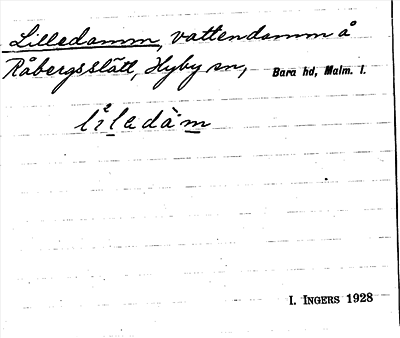 Lilledamm, vattendamm å
Råbergsslätt, Hyby sn, Bara hd, Malm. l.
lìladàm
I. INGERS 1928